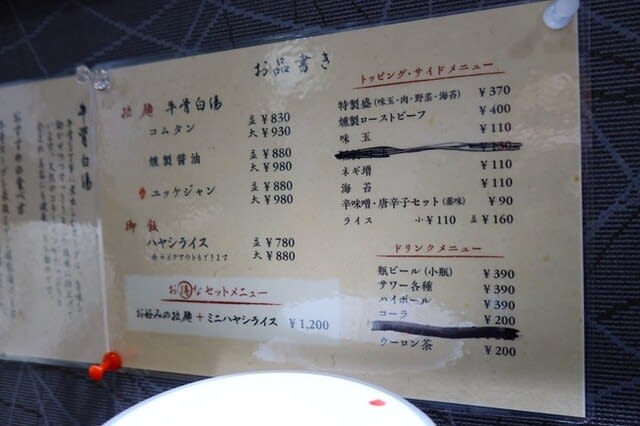 牛骨白湯
お品書き
拉麺 牛骨白湯
コムタン 並 ¥830
大 ¥930
燻製醤油 並 ¥880
大 ¥980
ユッケジャン 並 ¥880
大 ¥980
御飯
ハヤシライス 並 ¥780
※テイクアウトもできます 大 ¥880
お得なセットメニュー
お好みの拉麺 + ミニハヤシライス ¥1,200
トッピング・サイドメニュー
特製盛(味玉・肉・野菜・海苔) ¥370
燻製ローストビーフ ¥400
味玉 ¥110
ネギ増 ¥110
海苔 ¥110
辛味噌・唐辛子セット(薬味) ¥90
ライス 小¥110 並¥160
ドリンクメニュー
瓶ビール(小瓶) ¥390
サワー各種 ¥390
ハイボール ¥390
コーラ ¥200
ウーロン茶 ¥200